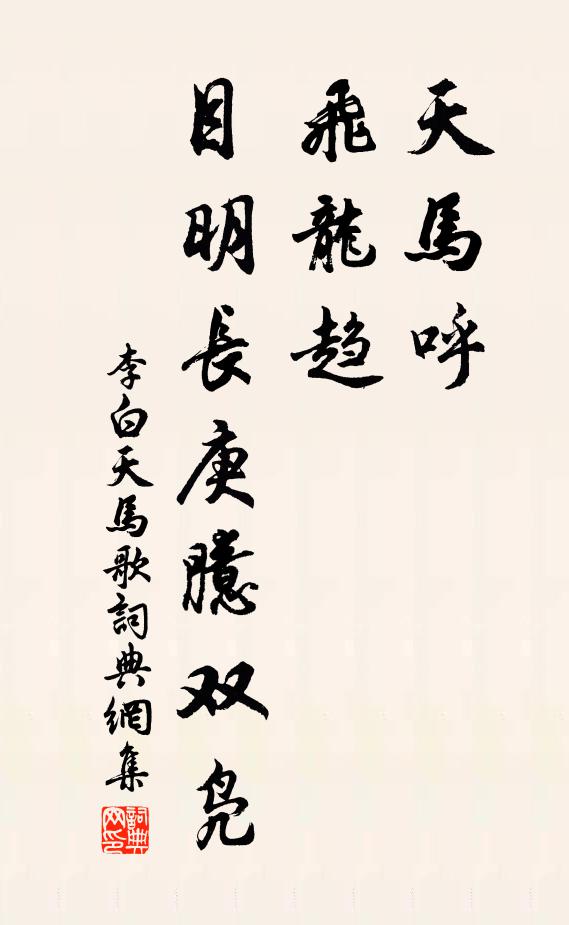 天馬呼
飛龍趋
目明長庚臆双鳧
李白天馬歌詞典網集
詞典网印